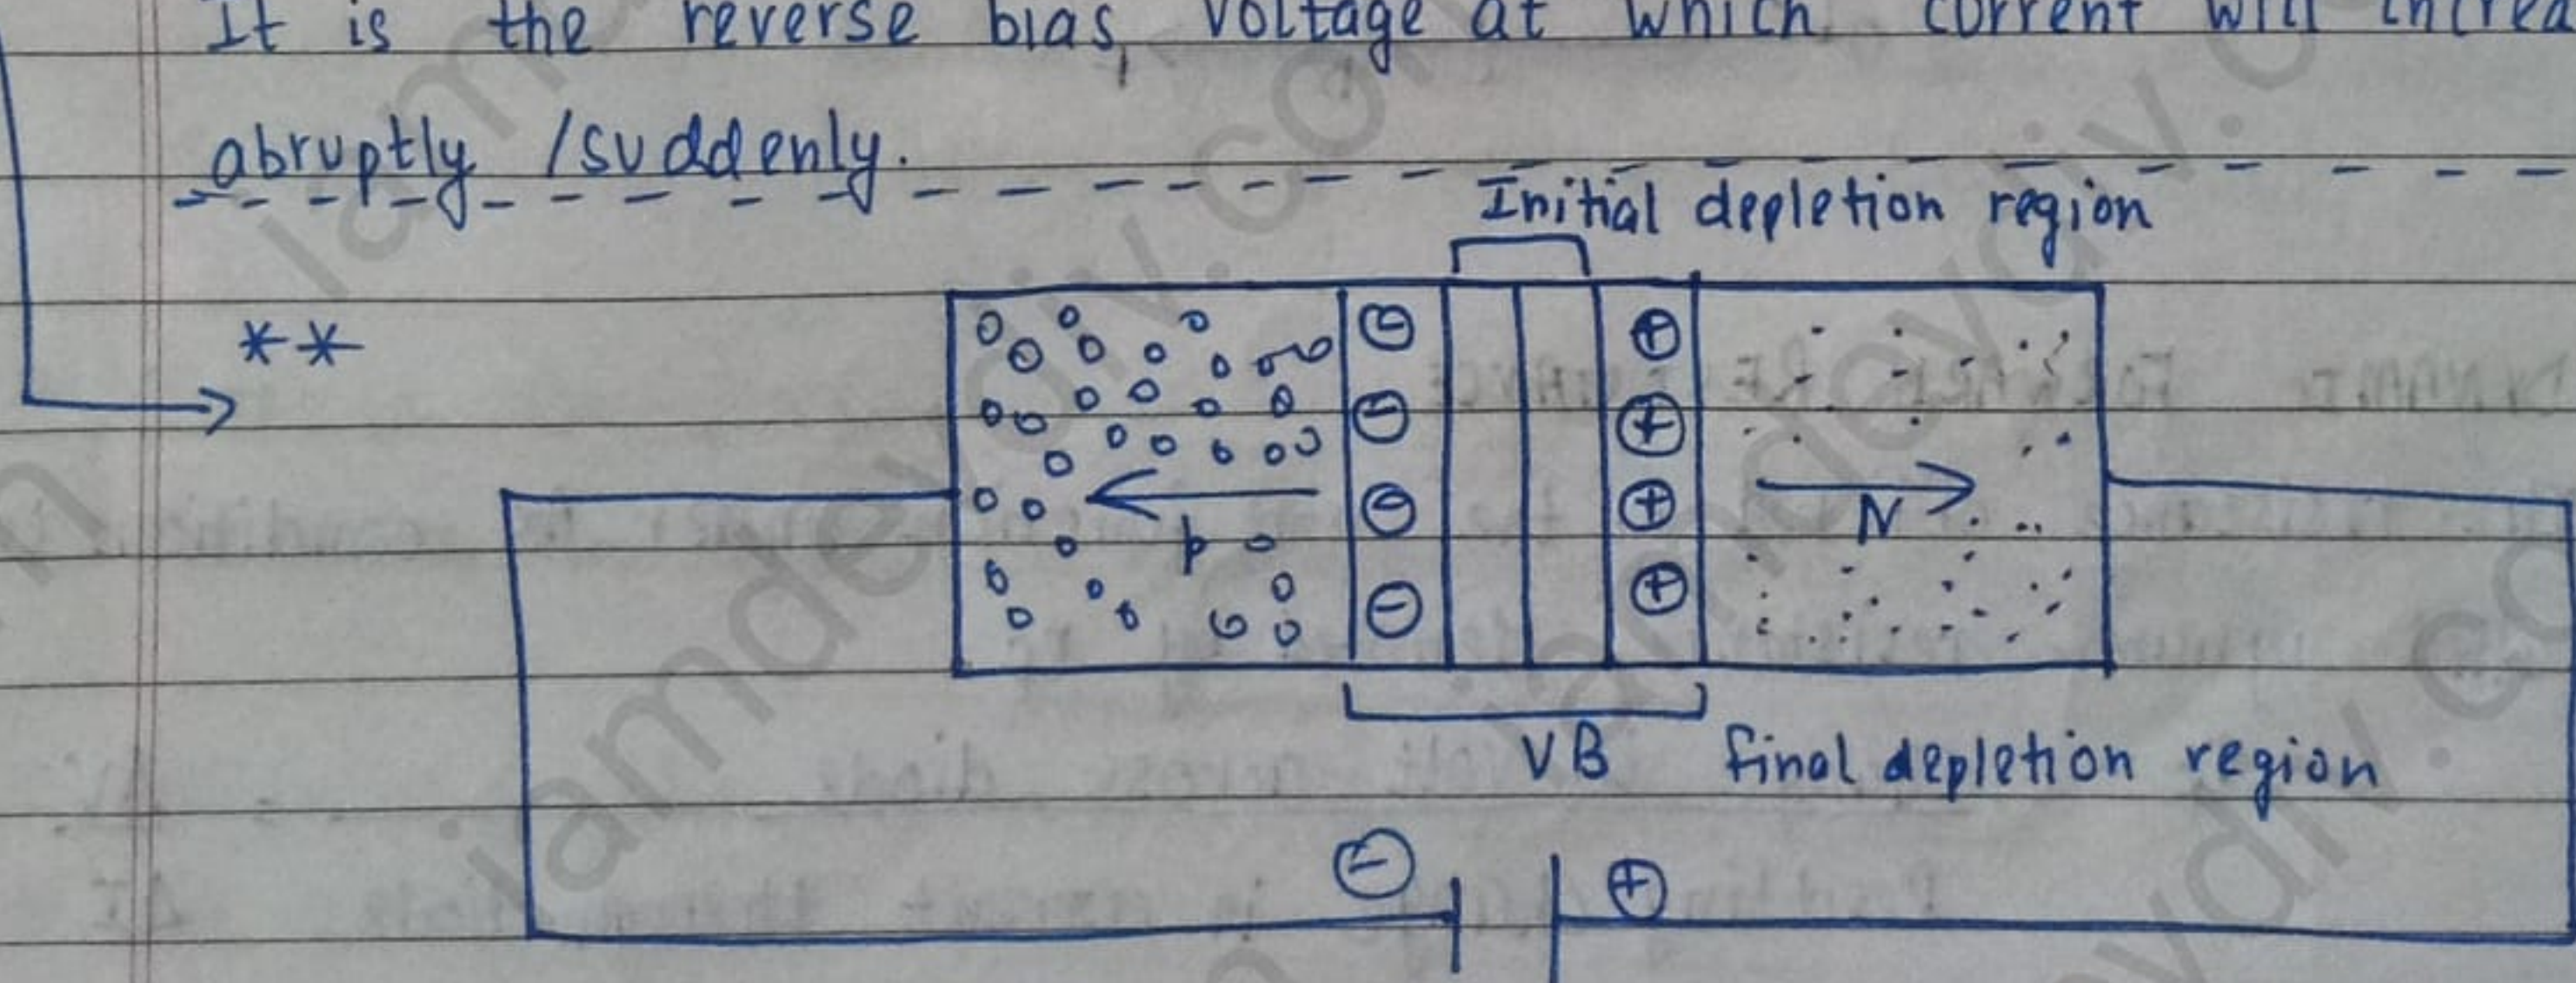 It is the reverse bias, voltage at which current will increa
abruptly /suddenly.
Initial depletion region
**
p
N
VB final depletion region
iamdevdiv.com